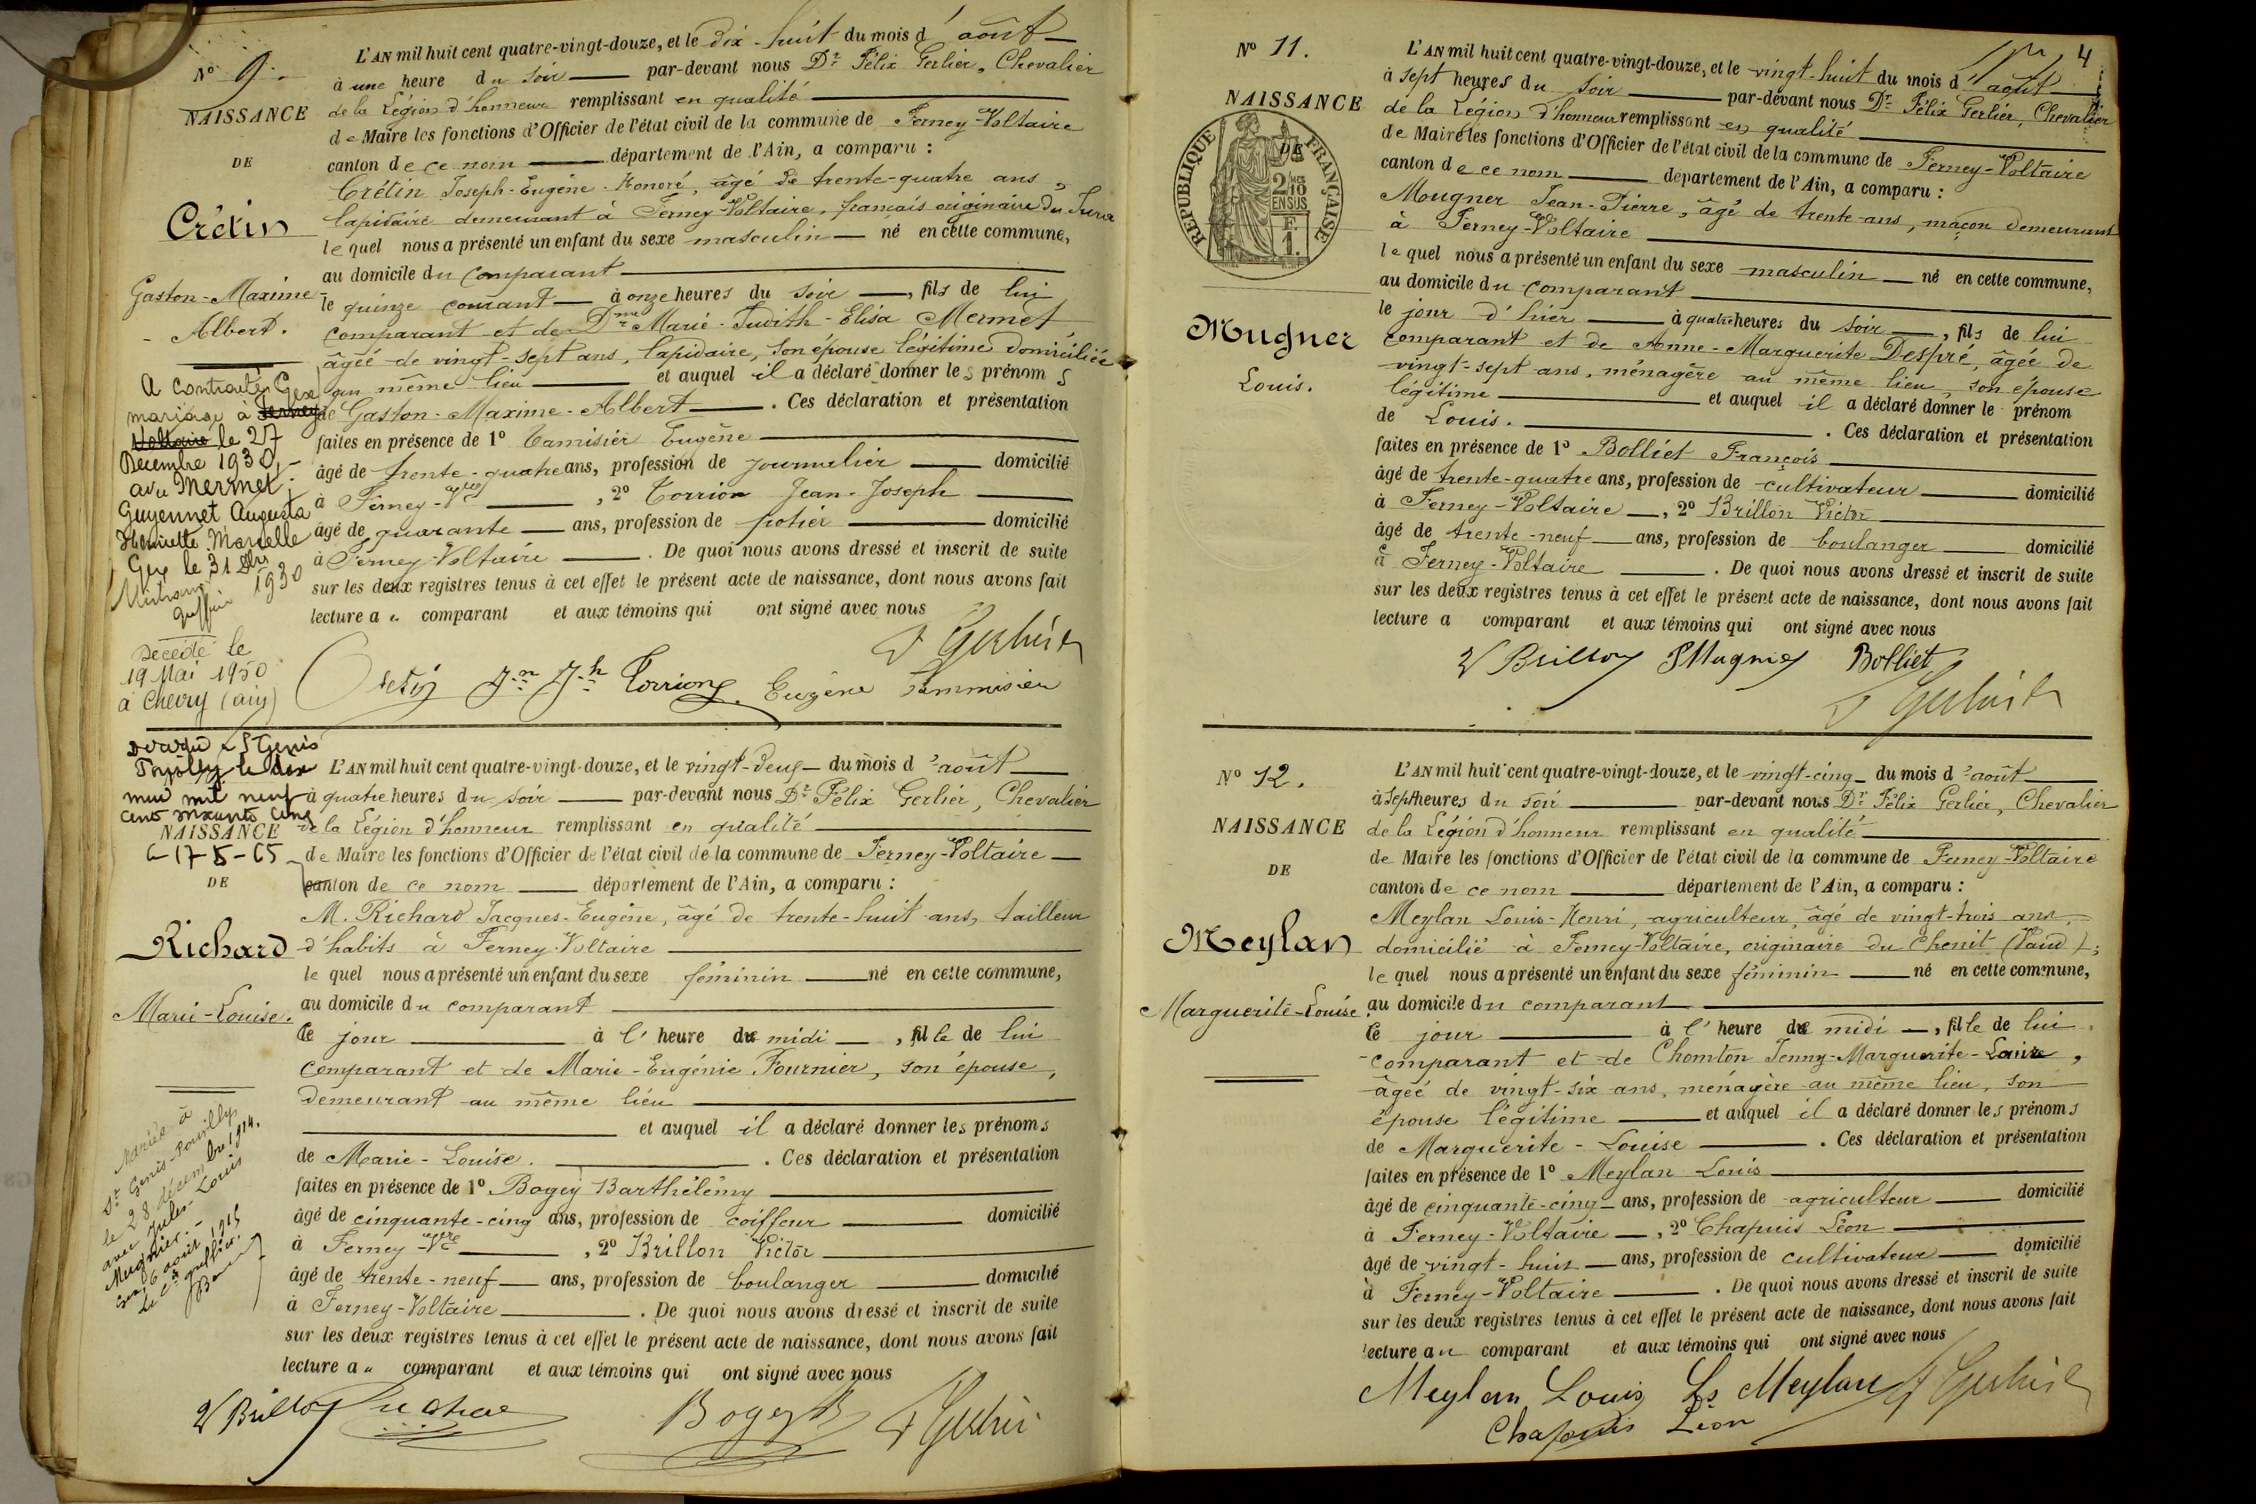 Nº 9.
NAISSANCE
DE
Crétin
Gaston-Maxime-
Albert.
A contracté
mariage à Gex Ferney
Voltaire le 27
Décembre 1930
avec Mermet
Guyennet Augusta
Henriette Marcelle
Gex le 31 Xbre
1930
Décédé le
19 Mai 1950
à Chevry (ain)
L'AN mil huit cent quatre-vingt-douze, et le dix-huit du mois d'août
à une heure du soir par-devant nous Dr Félix Gerlier, Chevalier
de la Légion d'honneur remplissant en qualité
de Maire les fonctions d'Officier de l'état civil de la commune de Ferney-Voltaire
canton de ce nom département de l'Ain, a comparu :
Crétin Joseph-Eugène-Honoré, âgé de trente-quatre ans
lapidaire demeurant à Ferney-Voltaire, français originaire du Jura
lequel nous a présenté un enfant du sexe masculin né en cette commune,
au domicile du comparant
le quinze courant à onze heures du soir, fils de lui
comparant et de Dme Marie-Judith-Elisa Mermet
âgée de vingt-sept ans, lapidaire, son épouse légitime domiciliée
au même lieu et auquel il a déclaré donner les prénoms
de Gaston-Maxime-Albert. Ces déclaration et présentation
faites en présence de 1º Tamisier Eugène
âgé de trente-quatre ans, profession de journalier domicilié
à Ferney-Vre, 2º Torrion Jean-Joseph
âgé de quarante ans, profession de potier domicilié
à Ferney-Voltaire. De quoi nous avons dressé et inscrit de suite
sur les deux registres tenus à cet effet le présent acte de naissance, dont nous avons fait
lecture au comparant et aux témoins qui ont signé avec nous
F Gerlier
Cretin Jn Jh Torrion Eugène Tammisier
à St Genis
Pouilly le dix
mil neuf
cent soixante cinq
NAISSANCE
DE
Richard
Marie-Louise.
Mariée à
St Genis-Pouilly
le 28 décembre 1914.
avec Jules-Louis
Mugnier.
Gex, 6 août 1915
Le Cs greffier.
L'AN mil huit cent quatre-vingt-douze, et le vingt-deux du mois d'août
à quatre heures du soir par-devant nous Dr Félix Gerlier, Chevalier
de la Légion d'honneur remplissant en qualité
de Maire les fonctions d'Officier de l'état civil de la commune de Ferney-Voltaire
canton de ce nom département de l'Ain, a comparu :
M. Richard Jacques-Eugène, âgé de trente-huit ans, tailleur
d'habits à Ferney-Voltaire
lequel nous a présenté un enfant du sexe féminin né en cette commune,
au domicile du comparant
ce jour à l'heure de midi, fille de lui
comparant et de Marie-Eugénie Fournier, son épouse,
demeurant au même lieu
et auquel il a déclaré donner les prénoms
de Marie-Louise. Ces déclaration et présentation
faites en présence de 1º Bogey Barthélémy
âgé de cinquante-cinq ans, profession de coiffeur domicilié
à Ferney-Vre, 2º Brillon Victor
âgé de trente-neuf ans, profession de boulanger domicilié
à Ferney-Voltaire. De quoi nous avons dressé et inscrit de suite
sur les deux registres tenus à cet effet le présent acte de naissance, dont nous avons fait
lecture au comparant et aux témoins qui ont signé avec nous
V Brillon Richard Bogey B F Gerlier
4
Nº 11.
NAISSANCE
DE
RÉPUBLIQUE FRANÇAISE
2/10
EN SUS
F.
1.
Mugner
Louis.
L'AN mil huit cent quatre-vingt-douze, et le vingt-huit du mois d'août
à sept heures du soir par-devant nous Dr Félix Gerlier, Chevalier
de la Légion d'honneur remplissant en qualité
de Maire les fonctions d'Officier de l'état civil de la commune de Ferney-Voltaire
canton de ce nom département de l'Ain, a comparu :
Mougner Jean-Pierre, âgé de trente-ans, maçon demeurant
à Ferney-Voltaire
lequel nous a présenté un enfant du sexe masculin né en cette commune,
au domicile du comparant
le jour d'hier à quatre heures du soir, fils de lui
comparant et de Anne-Marguerite Despré, âgée de
vingt-sept ans, ménagère au même lieu, son épouse
légitime et auquel il a déclaré donner le prénom
de Louis. Ces déclaration et présentation
faites en présence de 1º Bolliet François
âgé de trente-quatre ans, profession de cultivateur domicilié
à Ferney-Voltaire, 2º Brillon Victor
âgé de trente-neuf ans, profession de boulanger domicilié
à Ferney-Voltaire. De quoi nous avons dressé et inscrit de suite
sur les deux registres tenus à cet effet le présent acte de naissance, dont nous avons fait
lecture a comparant et aux témoins qui ont signé avec nous
V Brillon Bolliet
F Gerlier
Nº 12.
NAISSANCE
DE
Meylan
Marguerite-Louise.
L'AN mil huit cent quatre-vingt-douze, et le vingt-cinq du mois d'août
à sept heures du soir par-devant nous Dr Félix Gerlier, Chevalier
de la Légion d'honneur remplissant en qualité
de Maire les fonctions d'Officier de l'état civil de la commune de Ferney-Voltaire
canton de ce nom département de l'Ain, a comparu :
Meylan Louis-Henri, agriculteur, âgé de vingt-trois ans,
domicilié à Ferney-Voltaire, originaire du Chenit (Vaud);
lequel nous a présenté un enfant du sexe féminin né en cette commune,
au domicile du comparant
ce jour à l'heure de midi, fille de lui
comparant et de Chomton Jenny-Marguerite-Louise,
âgée de vingt-six ans, ménagère au même lieu, son
épouse légitime et auquel il a déclaré donner les prénoms
de Marguerite-Louise. Ces déclaration et présentation
faites en présence de 1º Meylan Louis
âgé de cinquante-cinq ans, profession de agriculteur domicilié
à Ferney-Voltaire, 2º Chapuis Léon
âgé de vingt-huit ans, profession de cultivateur domicilié
à Ferney-Voltaire. De quoi nous avons dressé et inscrit de suite
sur les deux registres tenus à cet effet le présent acte de naissance, dont nous avons fait
lecture au comparant et aux témoins qui ont signé avec nous
Meylan Louis Ls Meylan F Gerlier
Chapuis Léon